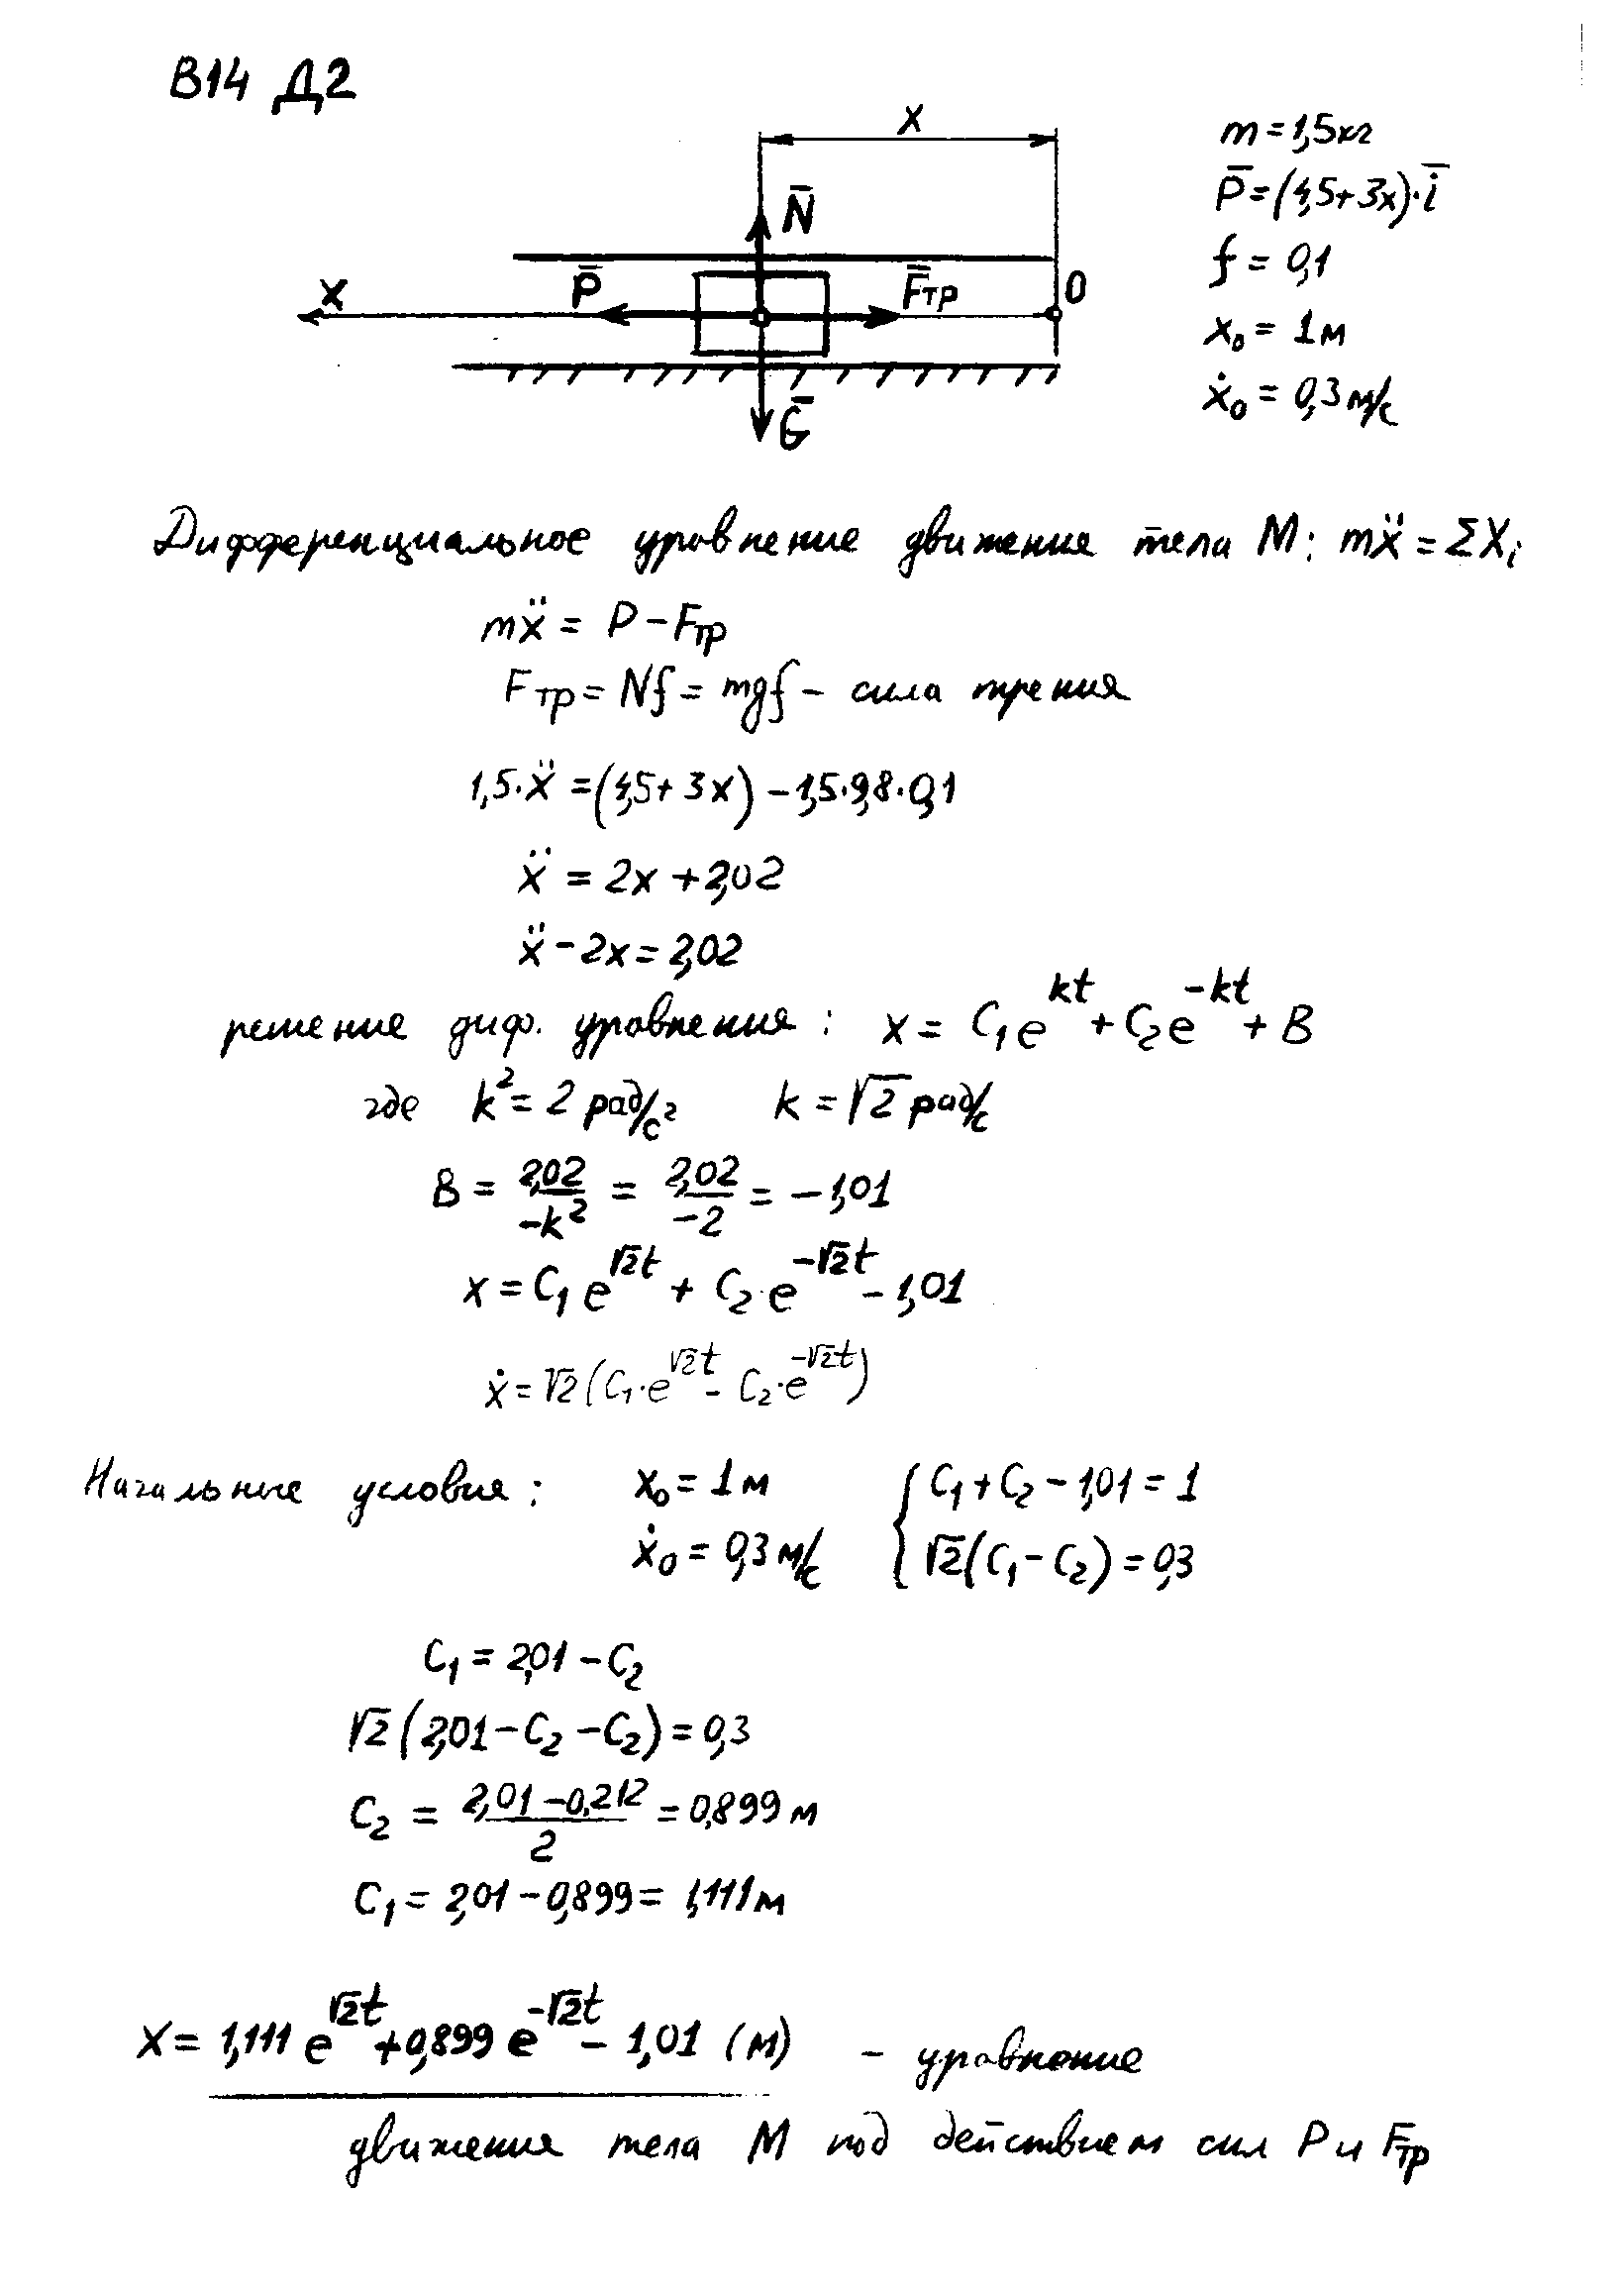 В14 Д2
x
m = 1,5 кг
P̄ = (4,5+3x)·ī
N̄
f = 0,1
P̄
F̄тр
O
x
x₀ = 1 м
ẋ₀ = 0,3 м/с
Ḡ
Дифференциальное уравнение движения тела М: mẍ = ΣXᵢ
mẍ = P − Fтр
Fтр = Nf = mgf − сила трения
1,5·ẍ = (4,5+3x) − 1,5·9,8·0,1
ẍ = 2x + 2,02
ẍ − 2x = 2,02
решение диф. уравнения: x = C₁e^{kt} + C₂e^{−kt} + B
где k² = 2 рад/с² k = √2 рад/с
B = 2,02/−k² = 2,02/−2 = −1,01
x = C₁e^{√2t} + C₂·e^{−√2t} − 1,01
ẋ = √2(C₁·e^{√2t} − C₂·e^{−√2t})
Начальные условия: x₀ = 1 м { C₁ + C₂ − 1,01 = 1
ẋ₀ = 0,3 м/с √2(C₁ − C₂) = 0,3
C₁ = 2,01 − C₂
√2(2,01 − C₂ − C₂) = 0,3
C₂ = (2,01 − 0,212)/2 = 0,899 м
C₁ = 2,01 − 0,899 = 1,111 м
x = 1,111 e^{√2t} + 0,899 e^{−√2t} − 1,01 (м) − уравнение
движения тела М под действием сил P и Fтр